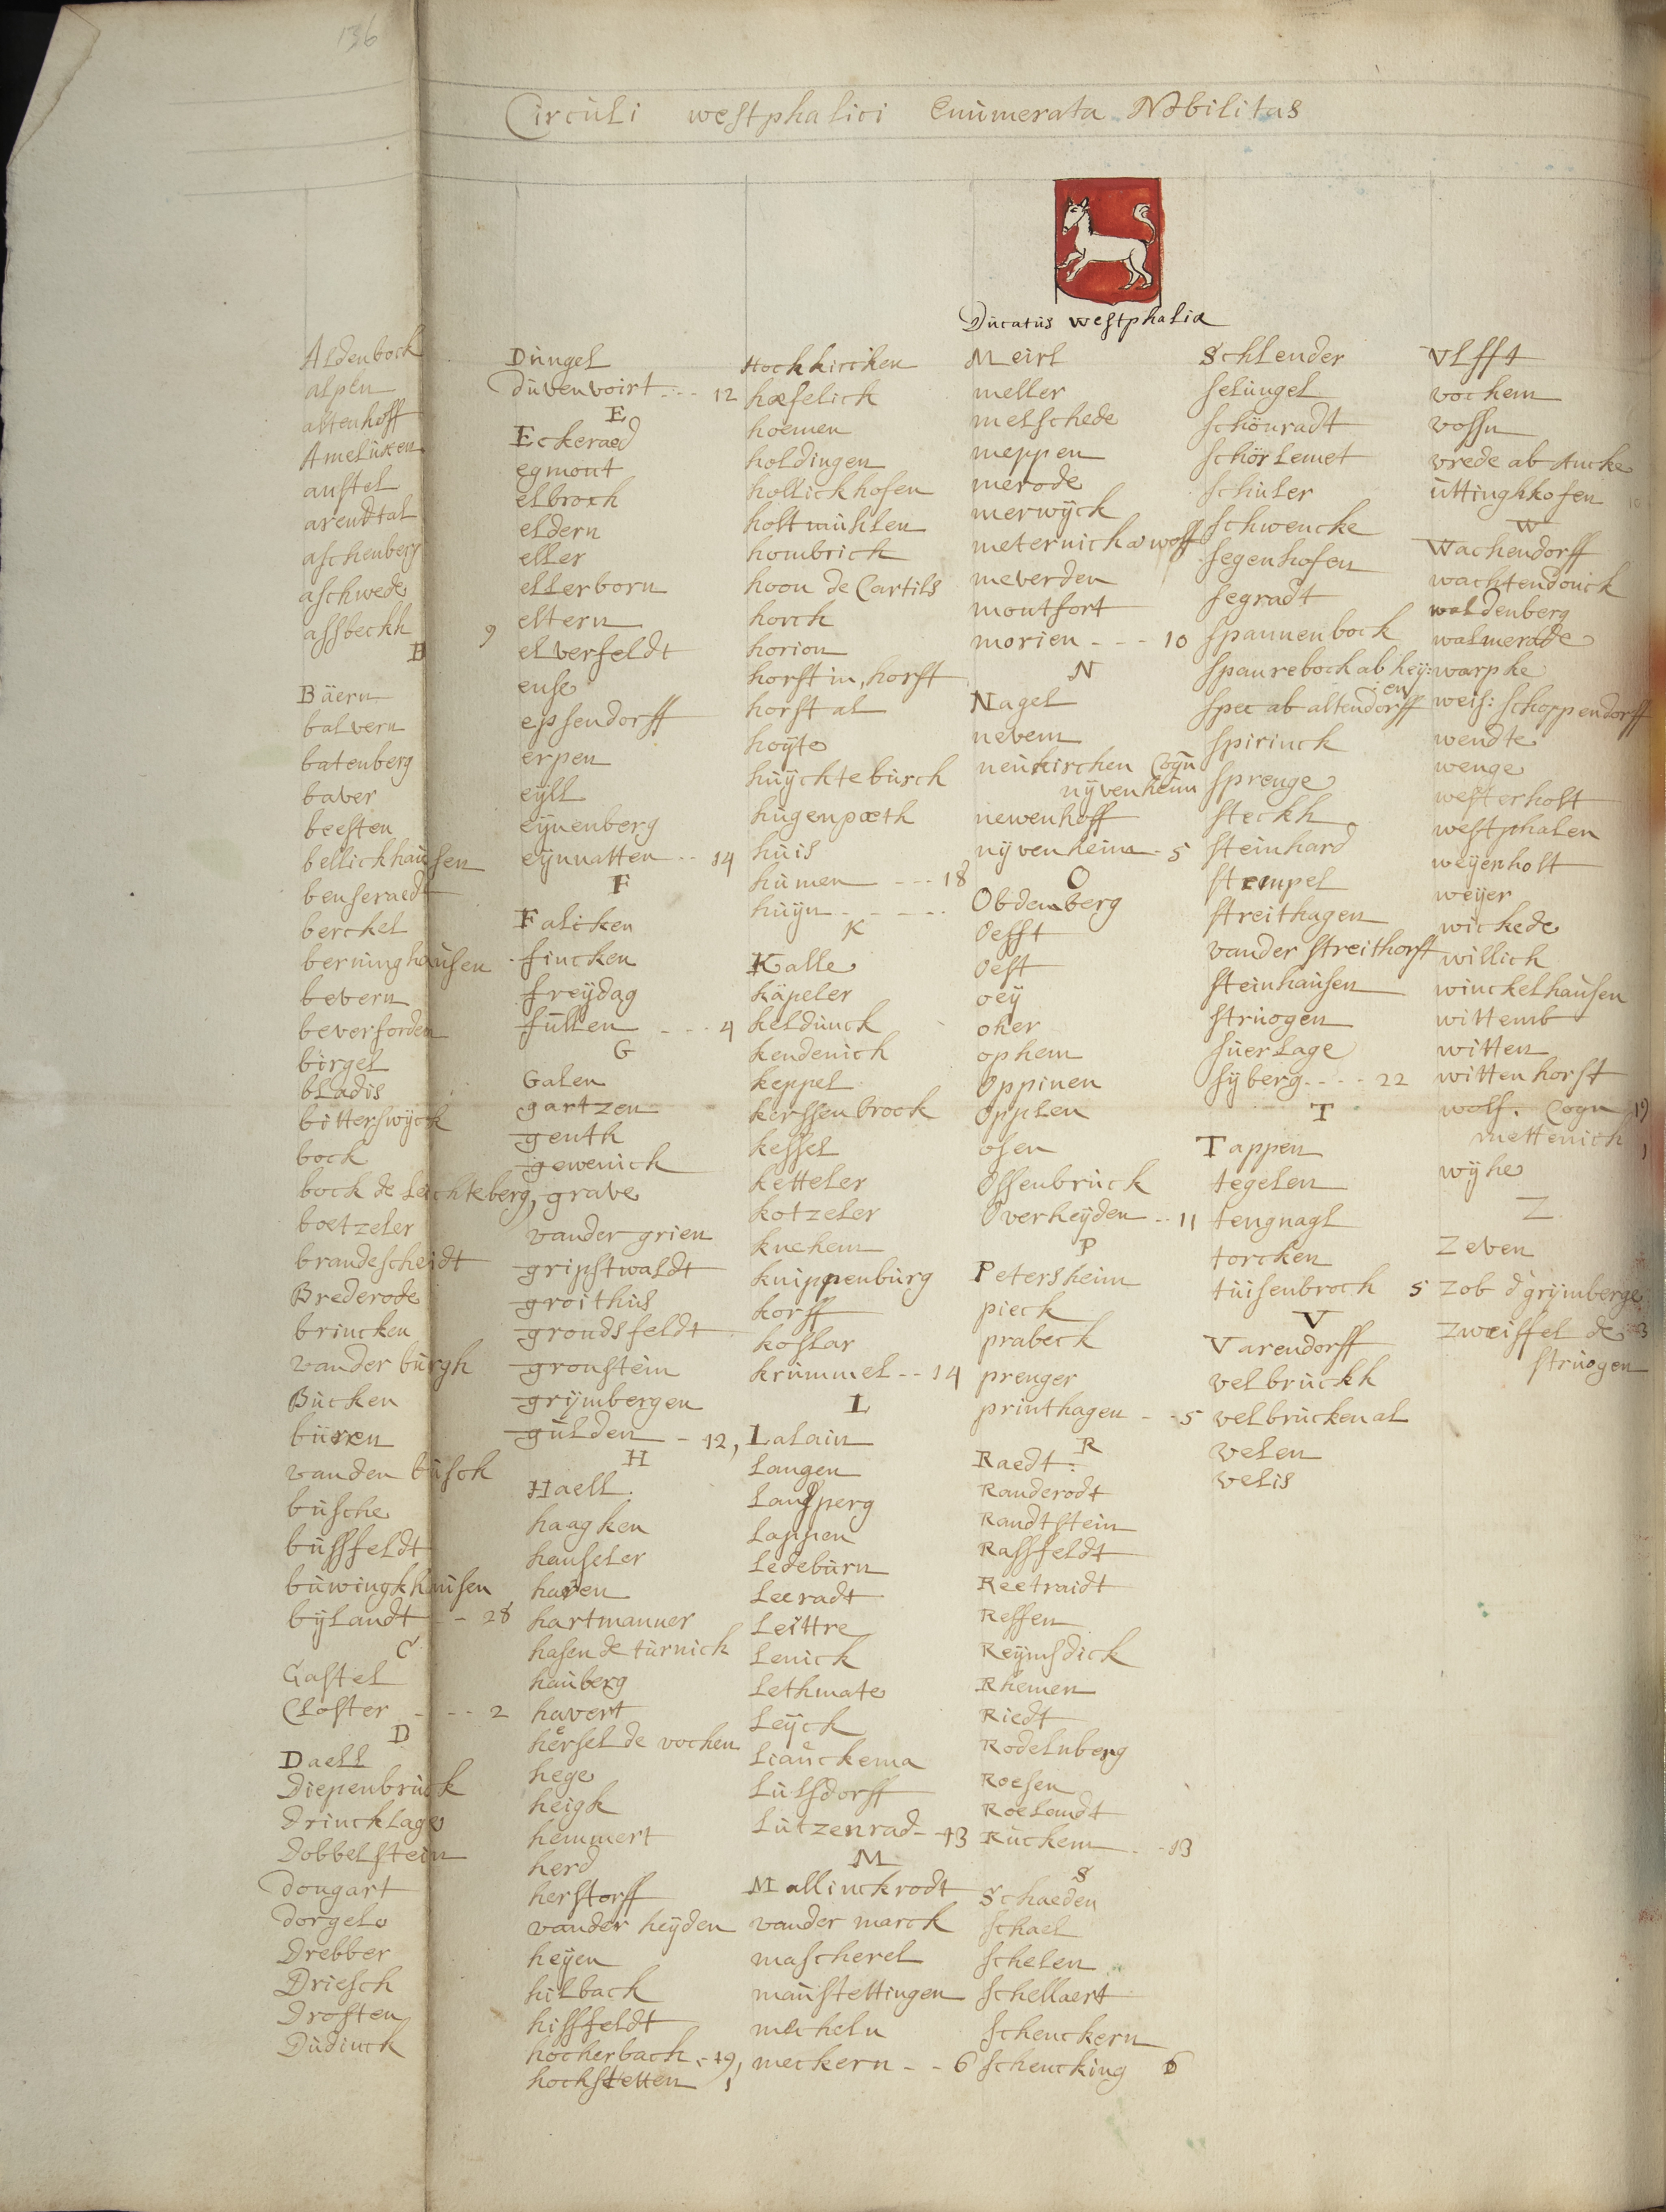 136
Circuli westphalici Enumerata Nobilitas
Ducatus westphaliæ
Aldenbock
alpen
altenhoff
Ameluxen
anstel
arendtal
aschenberg
aschwede
assbeckh 9
B
Bäern
balvern
batenberg
baver
beesten
bellickhausen
benseraedt
berckel
berninghausen
bevern
beverforden
birgel
bladis
bitterswÿck
bock
bock de Lechteberg,
boetzeler
brandescheidt
Brederode
brincken
vander burgh
Bucken
büren
vanden busch
busche
bussfeldt
buwingkhausen
bÿlandt - - 28
C
Castel
Closter - - - 2
D
Daell
Diepenbruck
Drincklage
Dobbelstein
dongart
dorgelo
Drebber
Driesch
Drosten
Dudinck
Dungel
duvenvoirt - - - 12
E
Eckeraed
egmont
elbroch
eldern
eller
ellerborn
eltern
elverfeldt
ense
epsendorff
erpen
eÿll
eÿnenberg
eÿnnatten - - 14
F
Falicken
fincken
freÿdag
fullen - - - 4
G
Galen
gartzen
genth
gewenich
grave
vander grien
gripstwaldt
groithus
grondsfeldt
gronstein
grÿmbergen
gulden - 12,
H
Haell
haagken
hanseler
haren
hartmanner
hasen de turnich
hauberg
havert
hersel de vochen
hege
heigk
hemmert
herd
herstorff
vander heÿden
heÿen
hilback
hissfeldt
hocherbach - 19,
hochstetten 1
Hochkircken
hæfelick
hoemen
holdingen
hollickhofen
holtmuhlen
hombrich
hoon de Cartils
horch
horion
horst in, horst
horst al
hoÿte
huÿchtebruch
hugenpæth
huis
humen - - - 18
huÿn - - - - -
K
Kalle
käpeler
keldunck
kendenich
keppel
kerssenbrock
kessel
ketteler
kotzeler
knehem
knippenburg
korff
koslar
krummel - - 14
L
Lalain
Langen
Landsperg
Lappen
Ledeburn
Leeradt
Leittre
Lenick
Lethmate
Leÿck
Liauckema
Lulsdorff
Lutzenrad - 13
M
Mallinckrodt
vander marck
mascherel
maustettingen
mecheln
meckern - - 6
Meirl
meller
melschede
meppen
merode
merwÿck
meternich a wolff
meverden
montfort
morien - - - 10
N
Nagel
nevem
neukirchen Cogn
nÿvenheim
newenhoff
nÿvenheim - 5
O
Obdenberg
Oefft
Oest
oeÿ
oker
ophem
Oppinen
Opplen
osen
Ossenbruck
Overheÿden - - 11
P
Petersheim
pieck
prabeck
prenger
printhagen - - 5
R
Raedt
Randerodt
Randtstein
Rassfeldt
Reetraidt
Ressen
Reÿmsdick
Rhemen
Riedt
Rodelnberg
Roesen
Roelandt
Ruckem - - 13
S
Schaeden
Schael
Schelen
Schellaert
Schenckern
Schencking 6
Schlender
selungel
Schönradt
Schörlemet
Schuler
Schwencke
segenhofen
segradt
spannenbock
spanrebock ab heÿ:
en
spee ab altendorff
spirinck
sprenge
steckh
steinhard
stempel
streithagen
vander streithorst
steinhausen
struogen
suerlage
sÿberg - - - - 22
T
Tappen
tegelen
tengnagl
torcken
tuisenbroch 5
V
Varendorff
velbruckh
velbrucken al
velen
velis
Vlfft
vochem
vossn
vrede ab Aucke
uttinghkofen 10
W
Wachendorff
wachtendonck
waldenberg
walmerade
warpke
weis: schoppendorff
wendte
wenge
westerholt
westphalen
weÿenholt
weÿer
wickede
willich
winckelhausen
wittemb
witten
wittenhorst
wolf. Cogn 19
mettenich 1
wÿhe
Z
Zeven
Zob d'grÿmberge
Zweiffel de 3
struogen